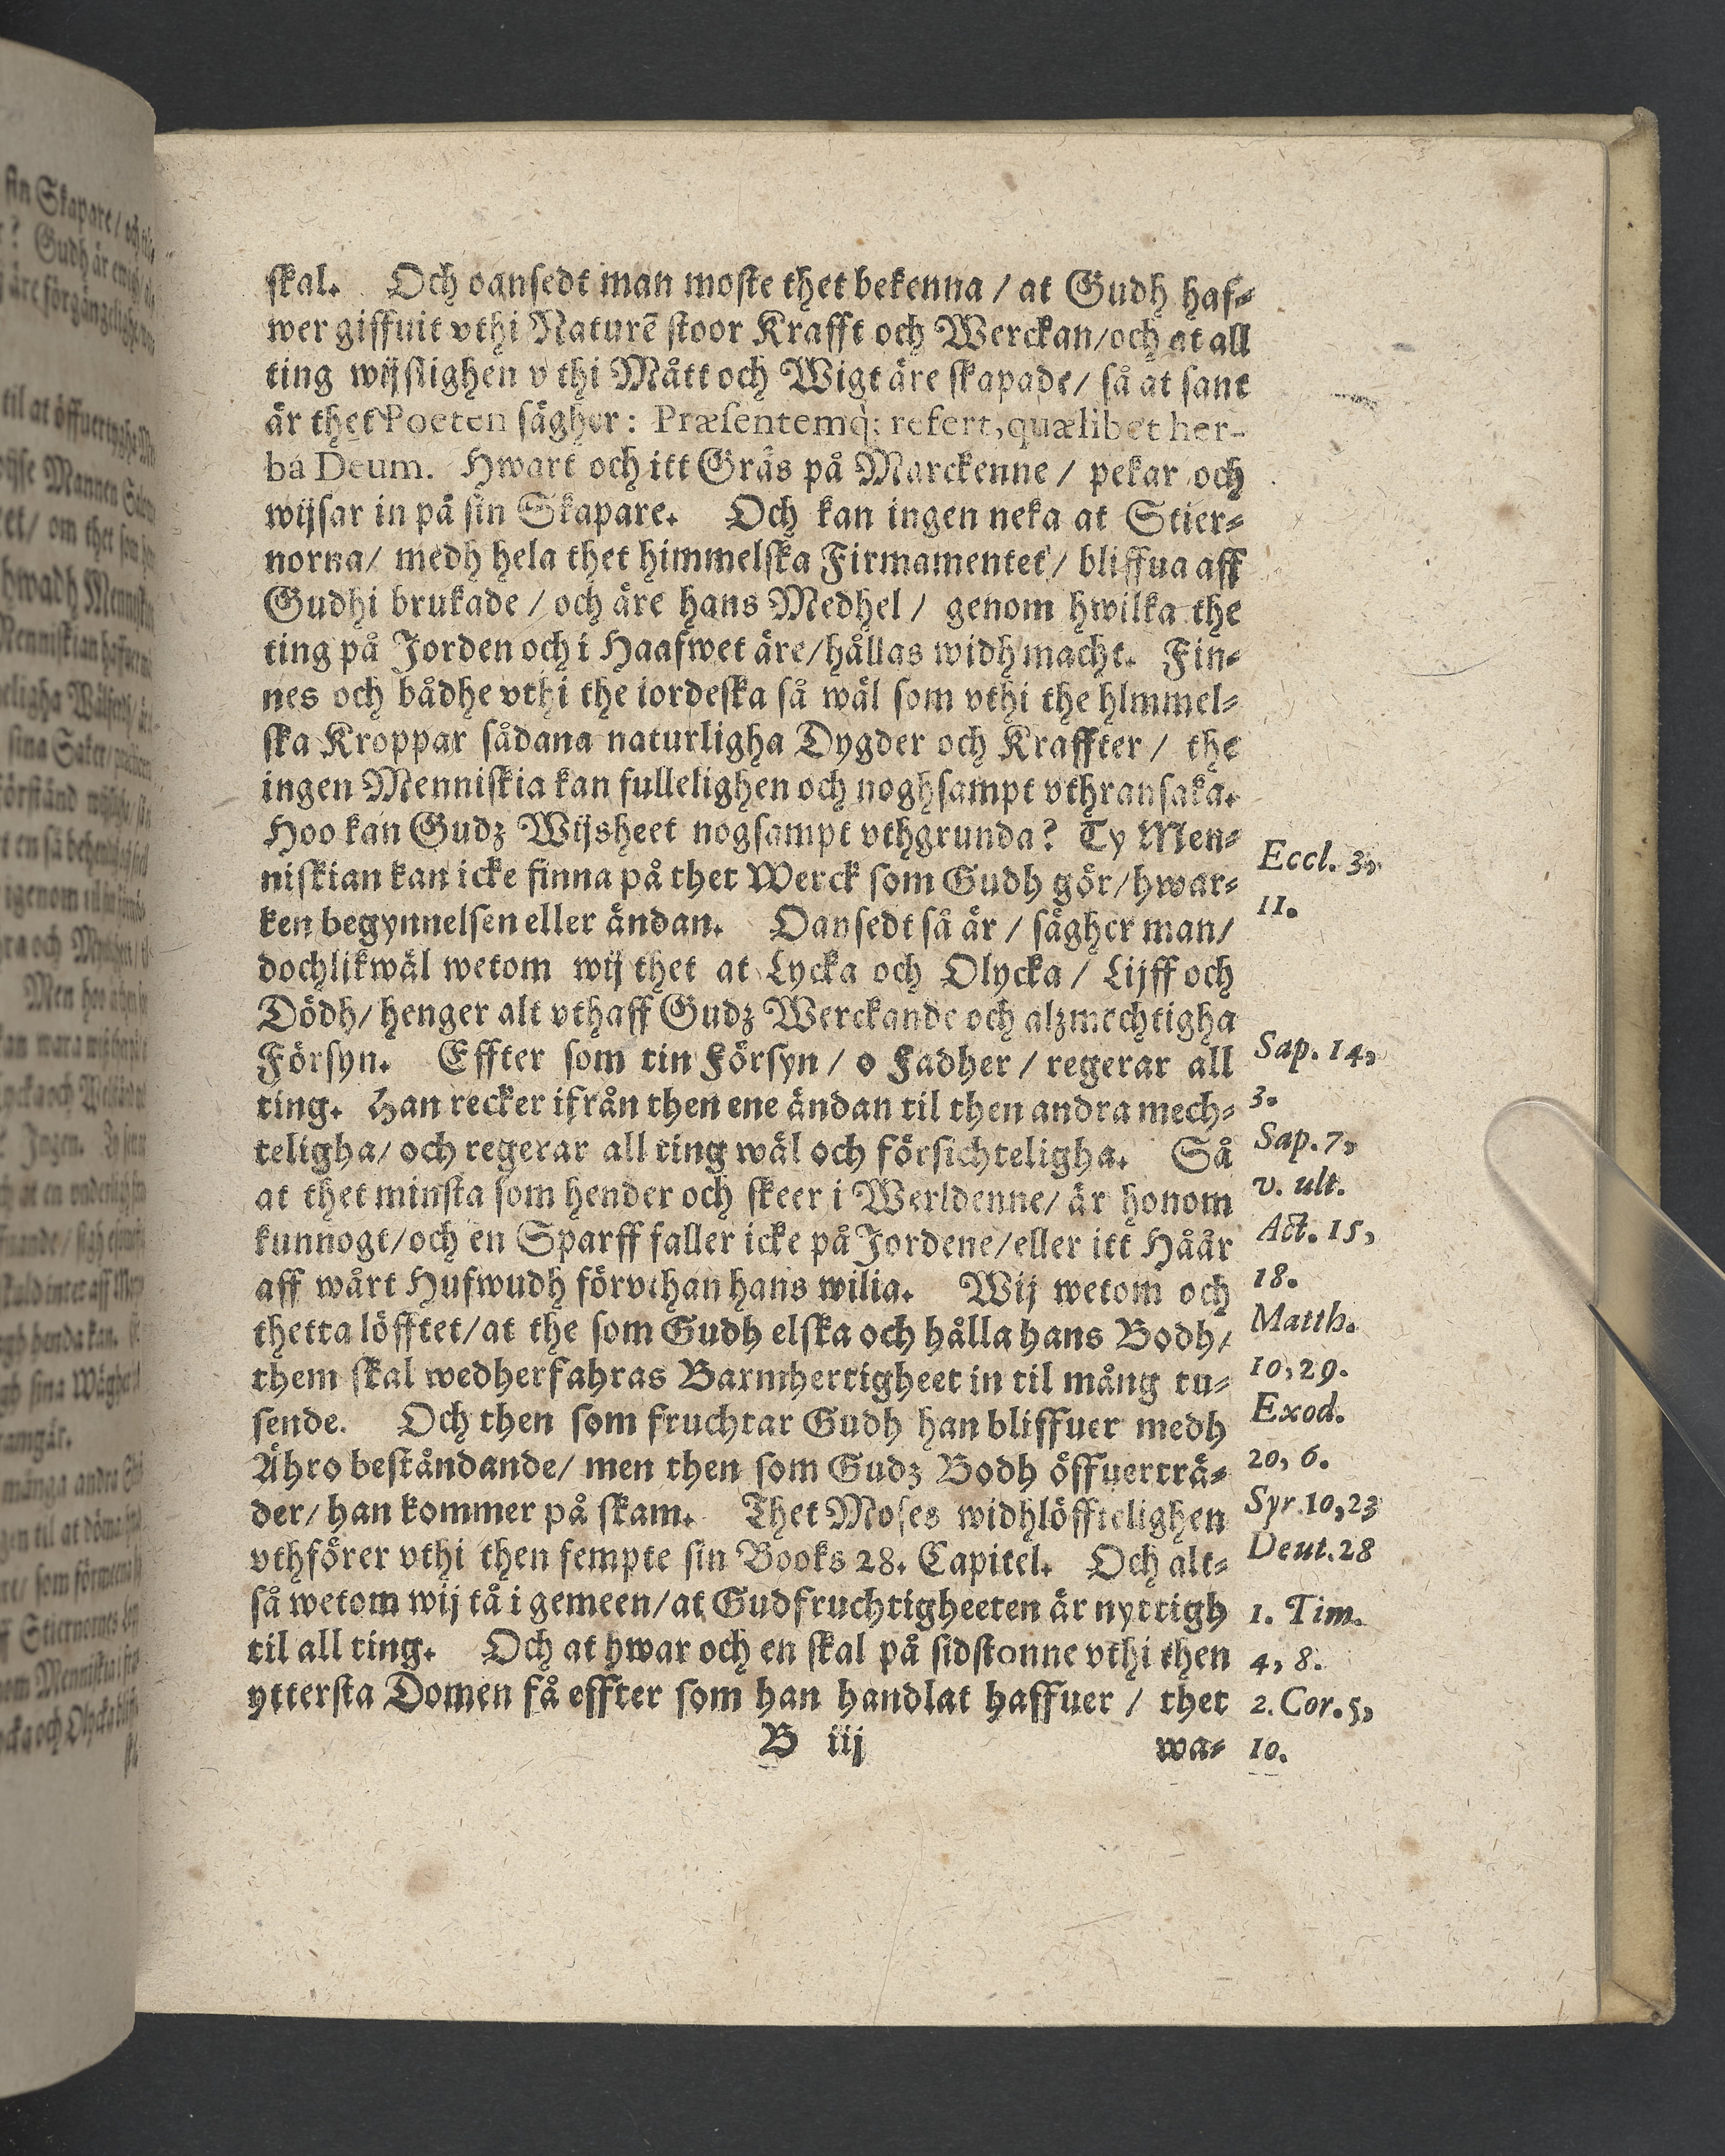 skal. Och oansedt man moste thet bekenna / at Gudh haf-
wer giffuit vthi Naturē stoor Krafft och Werckan/och at all
ting wijslighen vthi Mått och Wigt äre skapade/ så at sant
är thet Poeten sägher: Præsentemq; refert, quælibet her-
bá Deum. Hwart och itt Gräs på Marckenne / pekar och
wijsar in på sin Skapare. Och kan ingen neka at Stier-
norna/ medh hela thet himmelska Firmamentet/ bliffua aff
Gudhi brukade / och äre hans Medhel / genom hwilka the
ting på Jorden och i Haafwet äre/hållas widh macht. Fin-
nes och bådhe vthi the iordeska så wäl som vthi the hlmmel-
ska Kroppar sådana naturligha Dygder och Kraffter / the
ingen Menniskia kan fullelighen och noghsampt vthransaka.
Hoo kan Gudz Wijsheet nogsampt vthgrunda? Ty Men-
niskian kan icke finna på thet Werck som Gudh gör/hwar-
ken begynnelsen eller ändan. Oansedt så är / sägher man/
dochlikwäl wetom wij thet at Lycka och Olycka / Lijff och
Dödh/ henger alt vthaff Gudz Werckande och alzmechtigha
Försyn. Effter som tin Försyn / o Fadher / regerar all
ting. Han recker ifrån then ene ändan til then andra mech-
teligha/ och regerar all ting wäl och försichteligha. Så
at thet minsta som hender och skeer i Werldenne/ är honom
kunnogt/och en Sparff faller icke på Jordene/eller itt Håår
aff wårt Hufwudh förvthan hans wilia. Wij wetom och
thetta löfftet/at the som Gudh elska och hålla hans Bodh/
them skal wedherfahras Barmhertigheet in til mång tu-
sende. Och then som fruchtar Gudh han bliffuer medh
Ähro beståndande/ men then som Gudz Bodh öffuerträ-
der/ han kommer på skam. Thet Moses widhlöfftelighen
vthförer vthi then fempte sin Books 28. Capitel. Och alt-
så wetom wij tå i gemeen/at Gudfruchtigheeten är nyttigh
til all ting. Och at hwar och en skal på sidstonne vthi then
yttersta Domen få effter som han handlat haffuer / thet
B iij
wa-
Eccl. 3,
11.
Sap. 14,
3.
Sap. 7,
v. ult.
Act. 15,
18.
Matth.
10, 29.
Exod.
20, 6.
Syr. 10, 23
Deut. 28
1. Tim.
4, 8.
2. Cor. 5,
10.